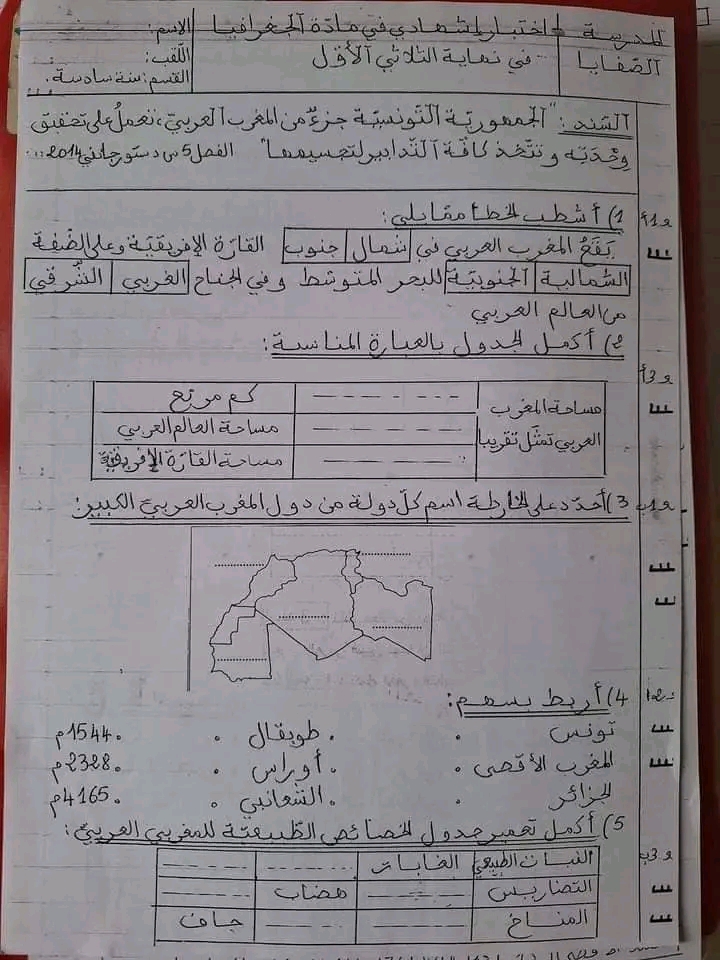 المدرسة
الصّفايا
اختبار إشهادي في مادّة الجغرافيا
في نهاية الثلاثي الأوّل
الاسم:
اللّقب:
القسم: سنة سادسة.
السّند: "الجمهوريّة التّونسيّة جزءٌ من المغرب العربيّ، تعملُ على تحقيق
وحدَتِه وتتّخذ كافّة التّدابير لتجسيمها" الفصل 5 من دستور جانفي 2014...
1) أشطب الخطأ مقابلي:
يَقَعُ المغرب العربي في شمال جنوب القارّة الإفريقيّة وعلى الضّفة
الشّمالية الجنوبيّة للبحر المتوسّط وفي الجناح الغربي الشّرقي
من العالم العربي
2) أكمل الجدول بالعبارة المناسبة:
مساحة المغرب - - - - - - كم مربّع
العربي تمثّل تقريبا - - - - - - مساحة العالم العربي
- - - - - - مساحة القارّة الإفريقيّة
3) أحدّد على الخارطة اسم كلّ دولة من دول المغرب العربيّ الكبير:
4) أربط بسهم:
تونس . . طوبقال . . 1544م
المغرب الأقصى . . أوراس . . 2328م
الجزائر . . الشّعانبي . . 4165م
5) أكمل تعمير جدول الخصائص الطّبيعيّة للمغرب العربيّ:
النبات الطّبيعي الغابات - - - - - - - -
التضاريس - - - - هضاب - - - -
المناخ - - - - - - - - جاف
و1أ
و3أ
و1ب
و3ب